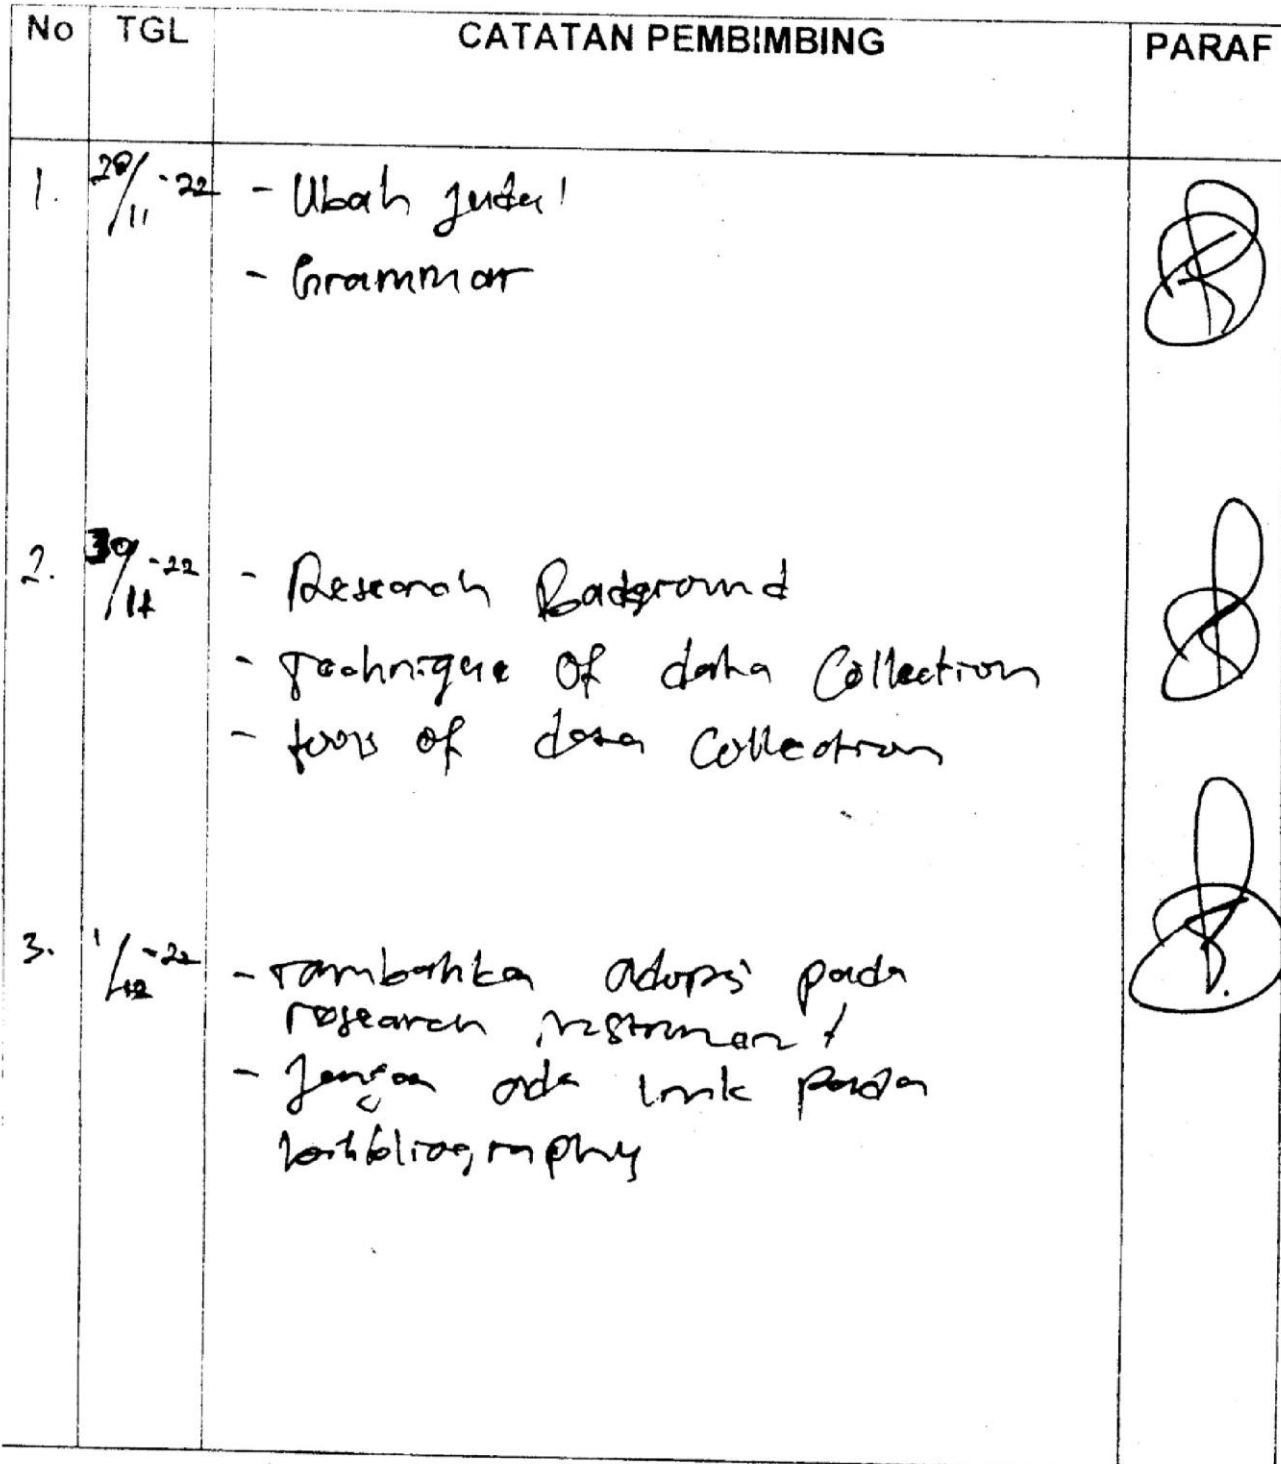 No TGL CATATAN PEMBIMBING PARAF
1. 28/11 -22 - Ubah judul
- Grammar
2. 30/11 -22 - Research Background
- Technique Of data Collection
- tools of data Collection
3. 1/12 -22 - Tambahka adopsi pada
research instrument
- Jangan ada link pada
bibliography